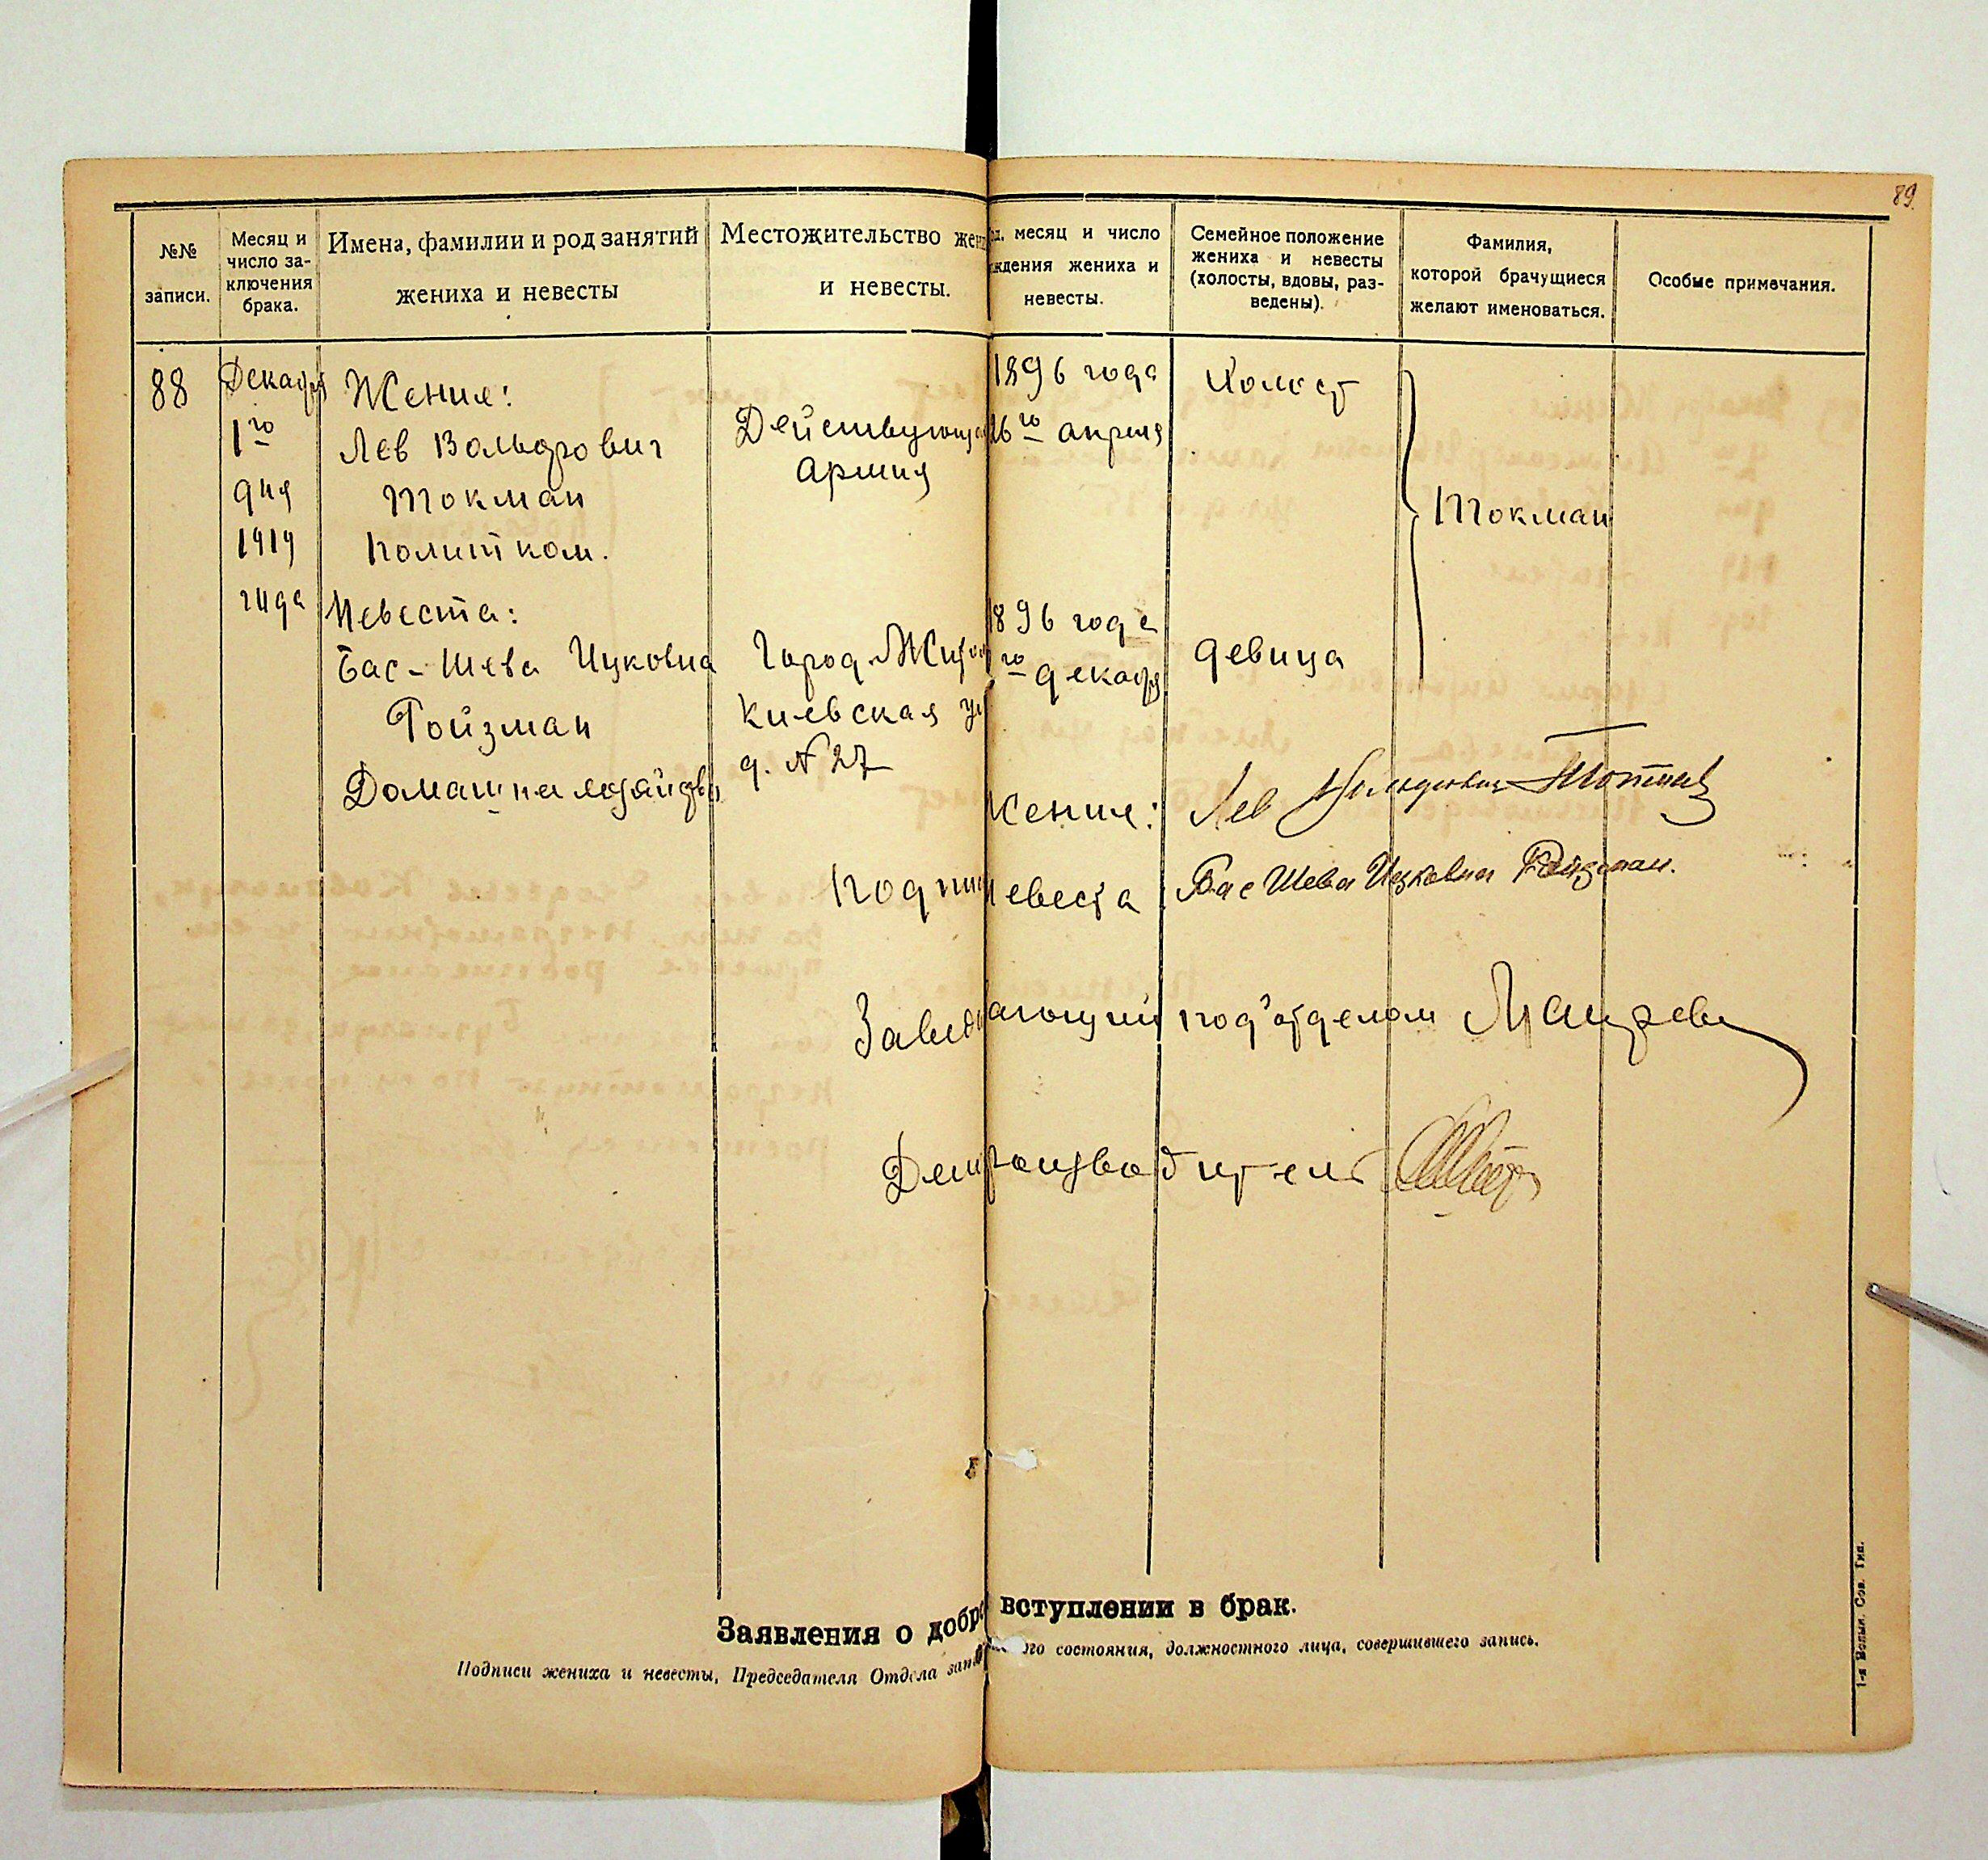 89.
№№ записи.
Месяц и число заключения брака.
Имена, фамилии и род занятий
жениха и невесты
Местожительство жени
и невесты.
месяц и число
ждения жениха и
невесты.
Семейное положение
жениха и невесты
(холосты, вдовы, раз-
ведены).
Фамилия,
которой брачущиеся
желают именоваться.
Особые примечания.
88
Декабр
1го
дня
1919
года
Жених:
Лев Вольфович
Токман
Политком.
Действующая
армия
1896 года
26го апреля
Холост
Токман
Невеста:
Бас-Шева Ицковна
Ройзман
Домашн. хозяйство
Город Житом
Киевская ул
д. № 27
1896 года
го декабр
девица
Жених: Лев
Подпи Невеста: Бас Шева Ицковна Ройзман.
Заведывающий под'отделом
Делопроизводитель
Заявления о добро вступлении в брак.
Подписи жениха и невесты, Председателя Отдела запи ого состояния, должностного лица, совершившего запись.
1-я Волын. Сов. Тип.